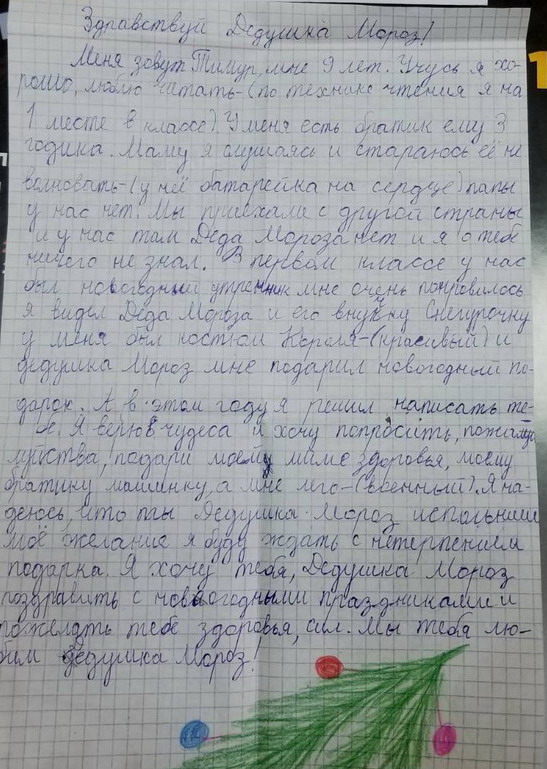 Здравствуй Дедушка Мороз!
Меня зовут Тимур, мне 9 лет. Учусь я хо-
рошо, люблю читать-(по технике чтения я на
1 месте в классе). У меня есть братик ему 3
годика. Маму я слушаясь и стараюсь её не
волновать-(у неё батарейка на сердце) папы
у нас нет. Мы приехали с другой страны
и у нас там Деда Мороза нет и я о тебе
ничего не знал. В первом классе у нас
был новогодный утренник мне очень понравилось
я видел Деда Мороза и его внучку Снегурочку
у меня был костюм Короля-(красивый) и
дедушка Мороз мне подарил новогодный по-
дарок. А в этом году я решил написать те-
бе. Я верю в чудеса и хочу попросить, пожалуй
муйста, подари моему маме здоровья, моему
братику машинку, а мне лего-(военный). Я на-
деюсь, что ты Дедушка Мороз исполниш
моё желание я буду ждать с нетерпением
подарка. Я хочу тебя, Дедушка Мороз
поздравить с новогодными праздниками и
пожелать тебе здоровья, сил. Мы тебя лю-
бим дедушка Мороз!